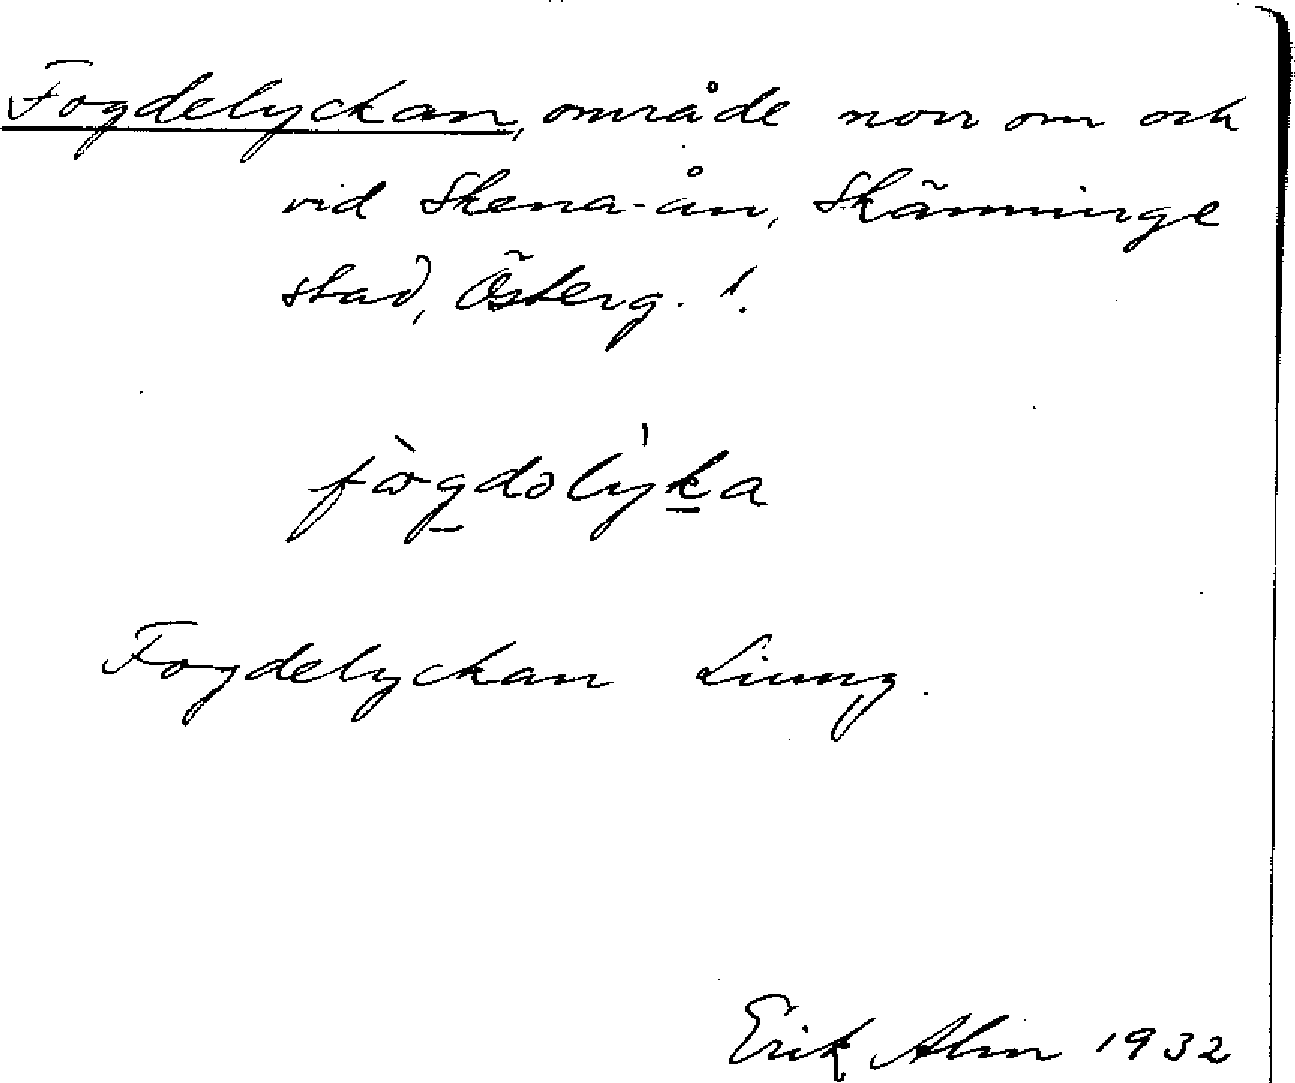 Fogdelyckan, område norr om och
vid Skena-ån, Skänninge
stad, Österg. !
fògdəlýka
Fogdelyckan Liung.
Erik Alm 1932